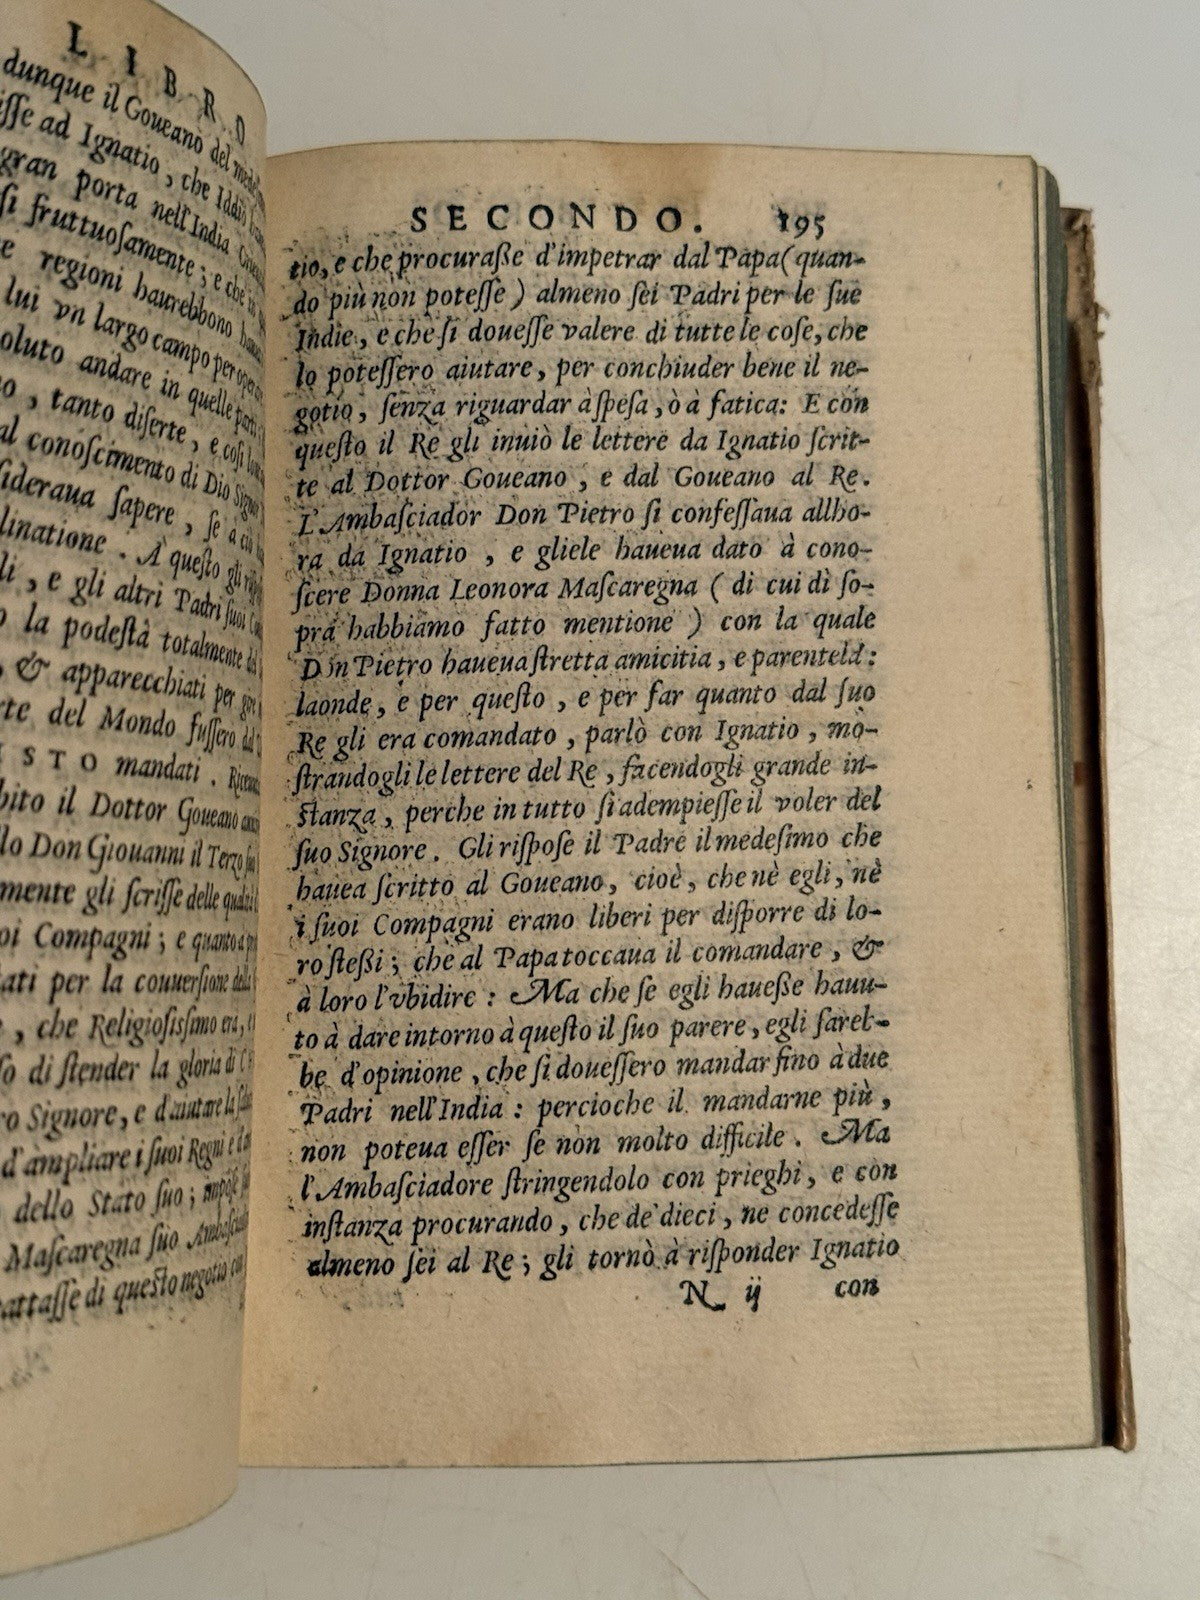 LIBRO
dunque il Goueano del
isse ad Ignatio, che Iddio
gran porta nell'India
si fruttuosamente; e che in
e regioni haurebbono
lui vn largo campo per
oluto andare in quelle parti
o, tanto diserte, e cosi
al conoscimento di Dio Signor
sideraua sapere, se à ciò
linatione. A questo gli
li, e gli altri Padri suoi
o la podestà totalmente del
, & apparecchiati per
rte del Mondo fussero dal
ISTO mandati.
bito il Dottor Goueano
lo Don Giouanni il Terzo suo
mente gli scrisse delle qualità
oi Compagni; e quanto
ati per la conuersione della
, che Religiosissimo era, e
so di stender la gloria di
ro Signore, e d'aiutare la
d'ampliare i suoi Regni e
dello Stato suo; impose
Mascaregna suo Ambasciad
attasse di questo negotio con
SECONDO. 195
tio, e che procuraße d'impetrar dal Papa (quan-
do più non potesse) almeno sei Padri per le sue
Indie, e che si douesse valere di tutte le cose, che
lo potessero aiutare, per conchiuder bene il ne-
gotio, senza riguardar à spesa, ò à fatica: E con
questo il Re gli inuiò le lettere da Ignatio scrit-
te al Dottor Goueano, e dal Goueano al Re.
L'Ambasciador Don Pietro si confessaua allho-
ra da Ignatio, e gliele haueua dato à cono-
scere Donna Leonora Mascaregna (di cui di so-
pra habbiamo fatto mentione) con la quale
Don Pietro haueua stretta amicitia, e parentela:
laonde, e per questo, e per far quanto dal suo
Re gli era comandato, parlò con Ignatio, mo-
strandogli le lettere del Re, facendogli grande in-
stanza, perche in tutto si adempiesse il voler del
suo Signore. Gli rispose il Padre il medesimo che
hauea scritto al Goueano, cioè, che nè egli, nè
i suoi Compagni erano liberi per disporre di lo-
ro steßi; che al Papa toccaua il comandare, &
à loro l'vbidire: Ma che se egli haueße hauu-
to à dare intorno à questo il suo parere, egli sareb-
be d'opinione, che si douessero mandar fino à due
Padri nell'India: percioche il mandarne più,
non poteua esser se non molto difficile. Ma
l'Ambasciadore stringendolo con prieghi, e con
instanza procurando, che de' dieci, ne concedesse
almeno sei al Re; gli tornò à risponder Ignatio
N ij con